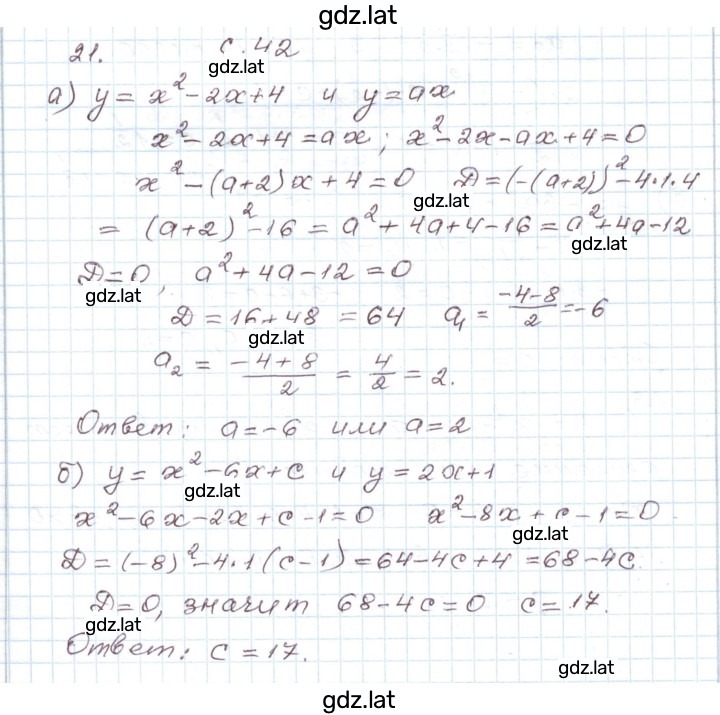 gdz.lat
21. с. 42
gdz.lat
а) y = x² - 2x + 4 и y = ax
x² - 2x + 4 = ax; x² - 2x - ax + 4 = 0
x² - (a+2)x + 4 = 0 D = (-(a+2))² - 4·1·4
gdz.lat
= (a+2)² - 16 = a² + 4a + 4 - 16 = a² + 4a - 12
gdz.lat
D = 0, a² + 4a - 12 = 0
gdz.lat
D = 16 + 48 = 64 a₁ = (-4-8)/2 = -6
gdz.lat
a₂ = (-4+8)/2 = 4/2 = 2.
Ответ: a = -6 или a = 2
б) y = x² - 6x + c и y = 2x + 1
gdz.lat
x² - 6x - 2x + c - 1 = 0 x² - 8x + c - 1 = 0
gdz.lat
D = (-8)² - 4·1(c-1) = 64 - 4c + 4 = 68 - 4c
D = 0, значит 68 - 4c = 0 c = 17.
gdz.lat
Ответ: c = 17.
gdz.lat
gdz.lat